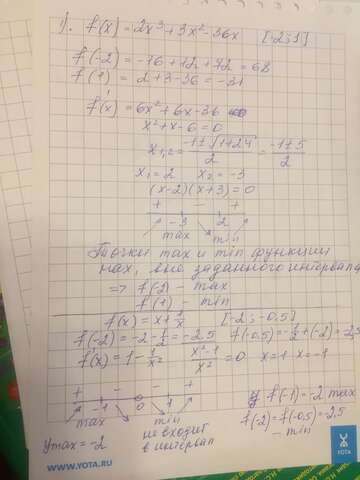 1). f(x) = 2x³ + 3x² - 36x [-2; 1]
f(-2) = -16 + 12 + 72 = 68
f(1) = 2 + 3 - 36 = -31
f'(x) = 6x² + 6x - 36
x² + x - 6 = 0
x₁,₂ = (-1 ± √(1+24))/2 = (-1 ± 5)/2
x₁ = 2 x₂ = -3
(x-2)(x+3) = 0
+ - +
-3 2
max min
Точки max и min функции
нах. вне заданного интервала
⇒ f(-2) - max
f(1) - min
f(x) = x + 1/x [-2; -0,5]
f(-2) = -2 - 1/2 = -2.5 f(-0,5) = -1/2 + (-2) = 2,5
f'(x) = 1 - 1/x² (x²-1)/x² = 0 x=1 x=-1
+ - - +
-1 0 1
max min
не входит
в интервал
Ymax = -2
f(-1) = -2 max
f(-2) = f(-0,5) = 2.5
- min
WWW.YOTA.RU
YOTA
WWW.YOTA.RU